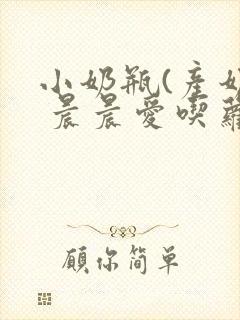 小奶瓶(産奶
晨晨愛喫蘿
願你简单